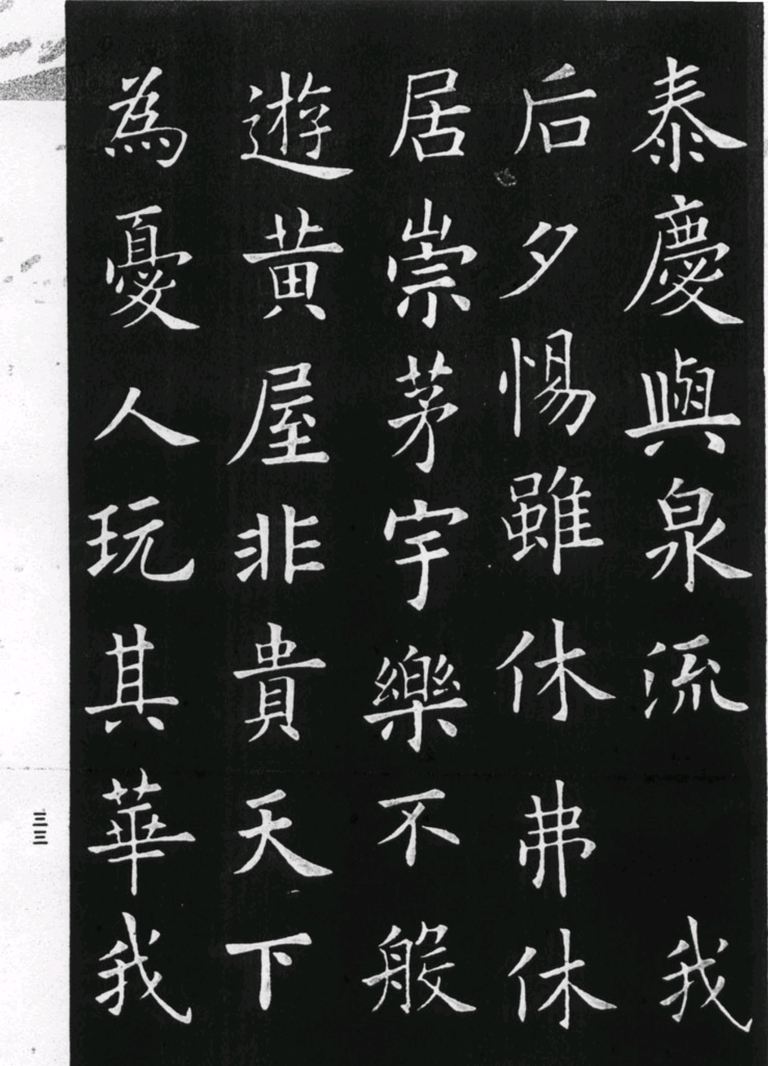 泰慶與泉流　我
后夕惕雖休弗休
居崇茅宇樂不般
遊黃屋非貴天下
為憂人玩其華我
三三